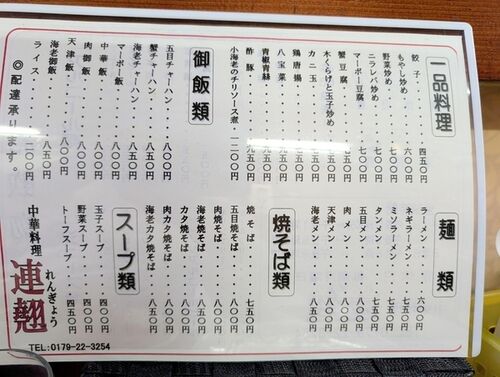 一品料理
餃子・・・・・四五〇円
もやし炒め・・・六〇〇円
野菜炒め・・・・
ニラレバ炒め・・
マーボー豆腐・・・七〇〇円
蟹豆腐・・・・
木くらげと玉子炒め
カニ玉・・・・
鶏唐揚・・・・
八宝菜・・・・
青椒青絲・・・
酢豚・・・・・九五〇円
小海老のチリソース煮 一二〇〇円
御飯類
五目チャーハン・・・八〇〇円
蟹チャーハン・・・八五〇円
海老チャーハン・・・八五〇円
マーボー飯・・・
中華飯・・・・八〇〇円
肉御飯・・・・八〇〇円
天津飯・・・・八〇〇円
海老御飯・・・・八五〇円
ライス・・・・二〇〇円
◎配達承ります。
麺類
ラーメン・・・・六〇〇円
ネギラーメン・・・七五〇円
ミソラーメン・・・七五〇円
タンメン・・・・七五〇円
五目メン・・・・八〇〇円
肉メン・・・・八〇〇円
天津メン・・・・八〇〇円
海老メン・・・・八五〇円
焼そば類
焼そば・・・・七五〇円
五目焼そば・・・八〇〇円
肉焼そば・・・・八〇〇円
海老焼そば・・・八五〇円
カタ焼そば・・・八〇〇円
肉カタ焼そば・・・八〇〇円
海老カタ焼そば・・八五〇円
スープ類
玉子スープ・・・四〇〇円
野菜スープ・・・四〇〇円
トーフスープ・・・四五〇円
中華料理
連翹
れんぎょう
TEL:0179-22-3254